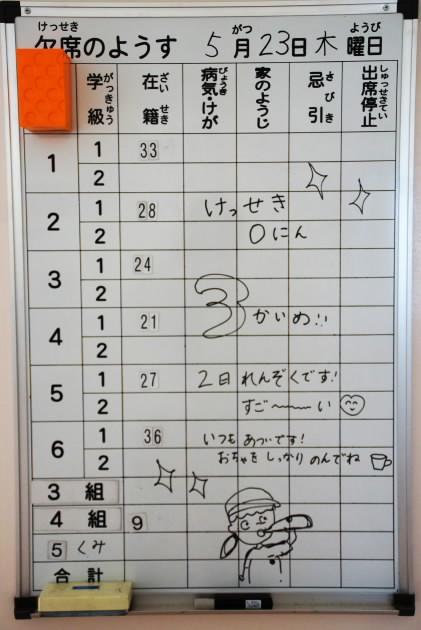 けっせき がつ ようび
欠席のようす 5月23日木曜日
学級 がっきゅう
在籍 ざいせき
病気けが びょうき
家のようじ
忌引 きびき
出席停止 しゅっせきてい
1 1 33
2
2 1 28 けっせき
2 0にん
3 1 24
2
3かいめ!!
4 1 21
2
5 1 27 2日れんぞくです!
2 すご〜い
6 1 36 いつもあついです!
2 おちゃをしっかりのんでね
3組
4組 9
5くみ
合計